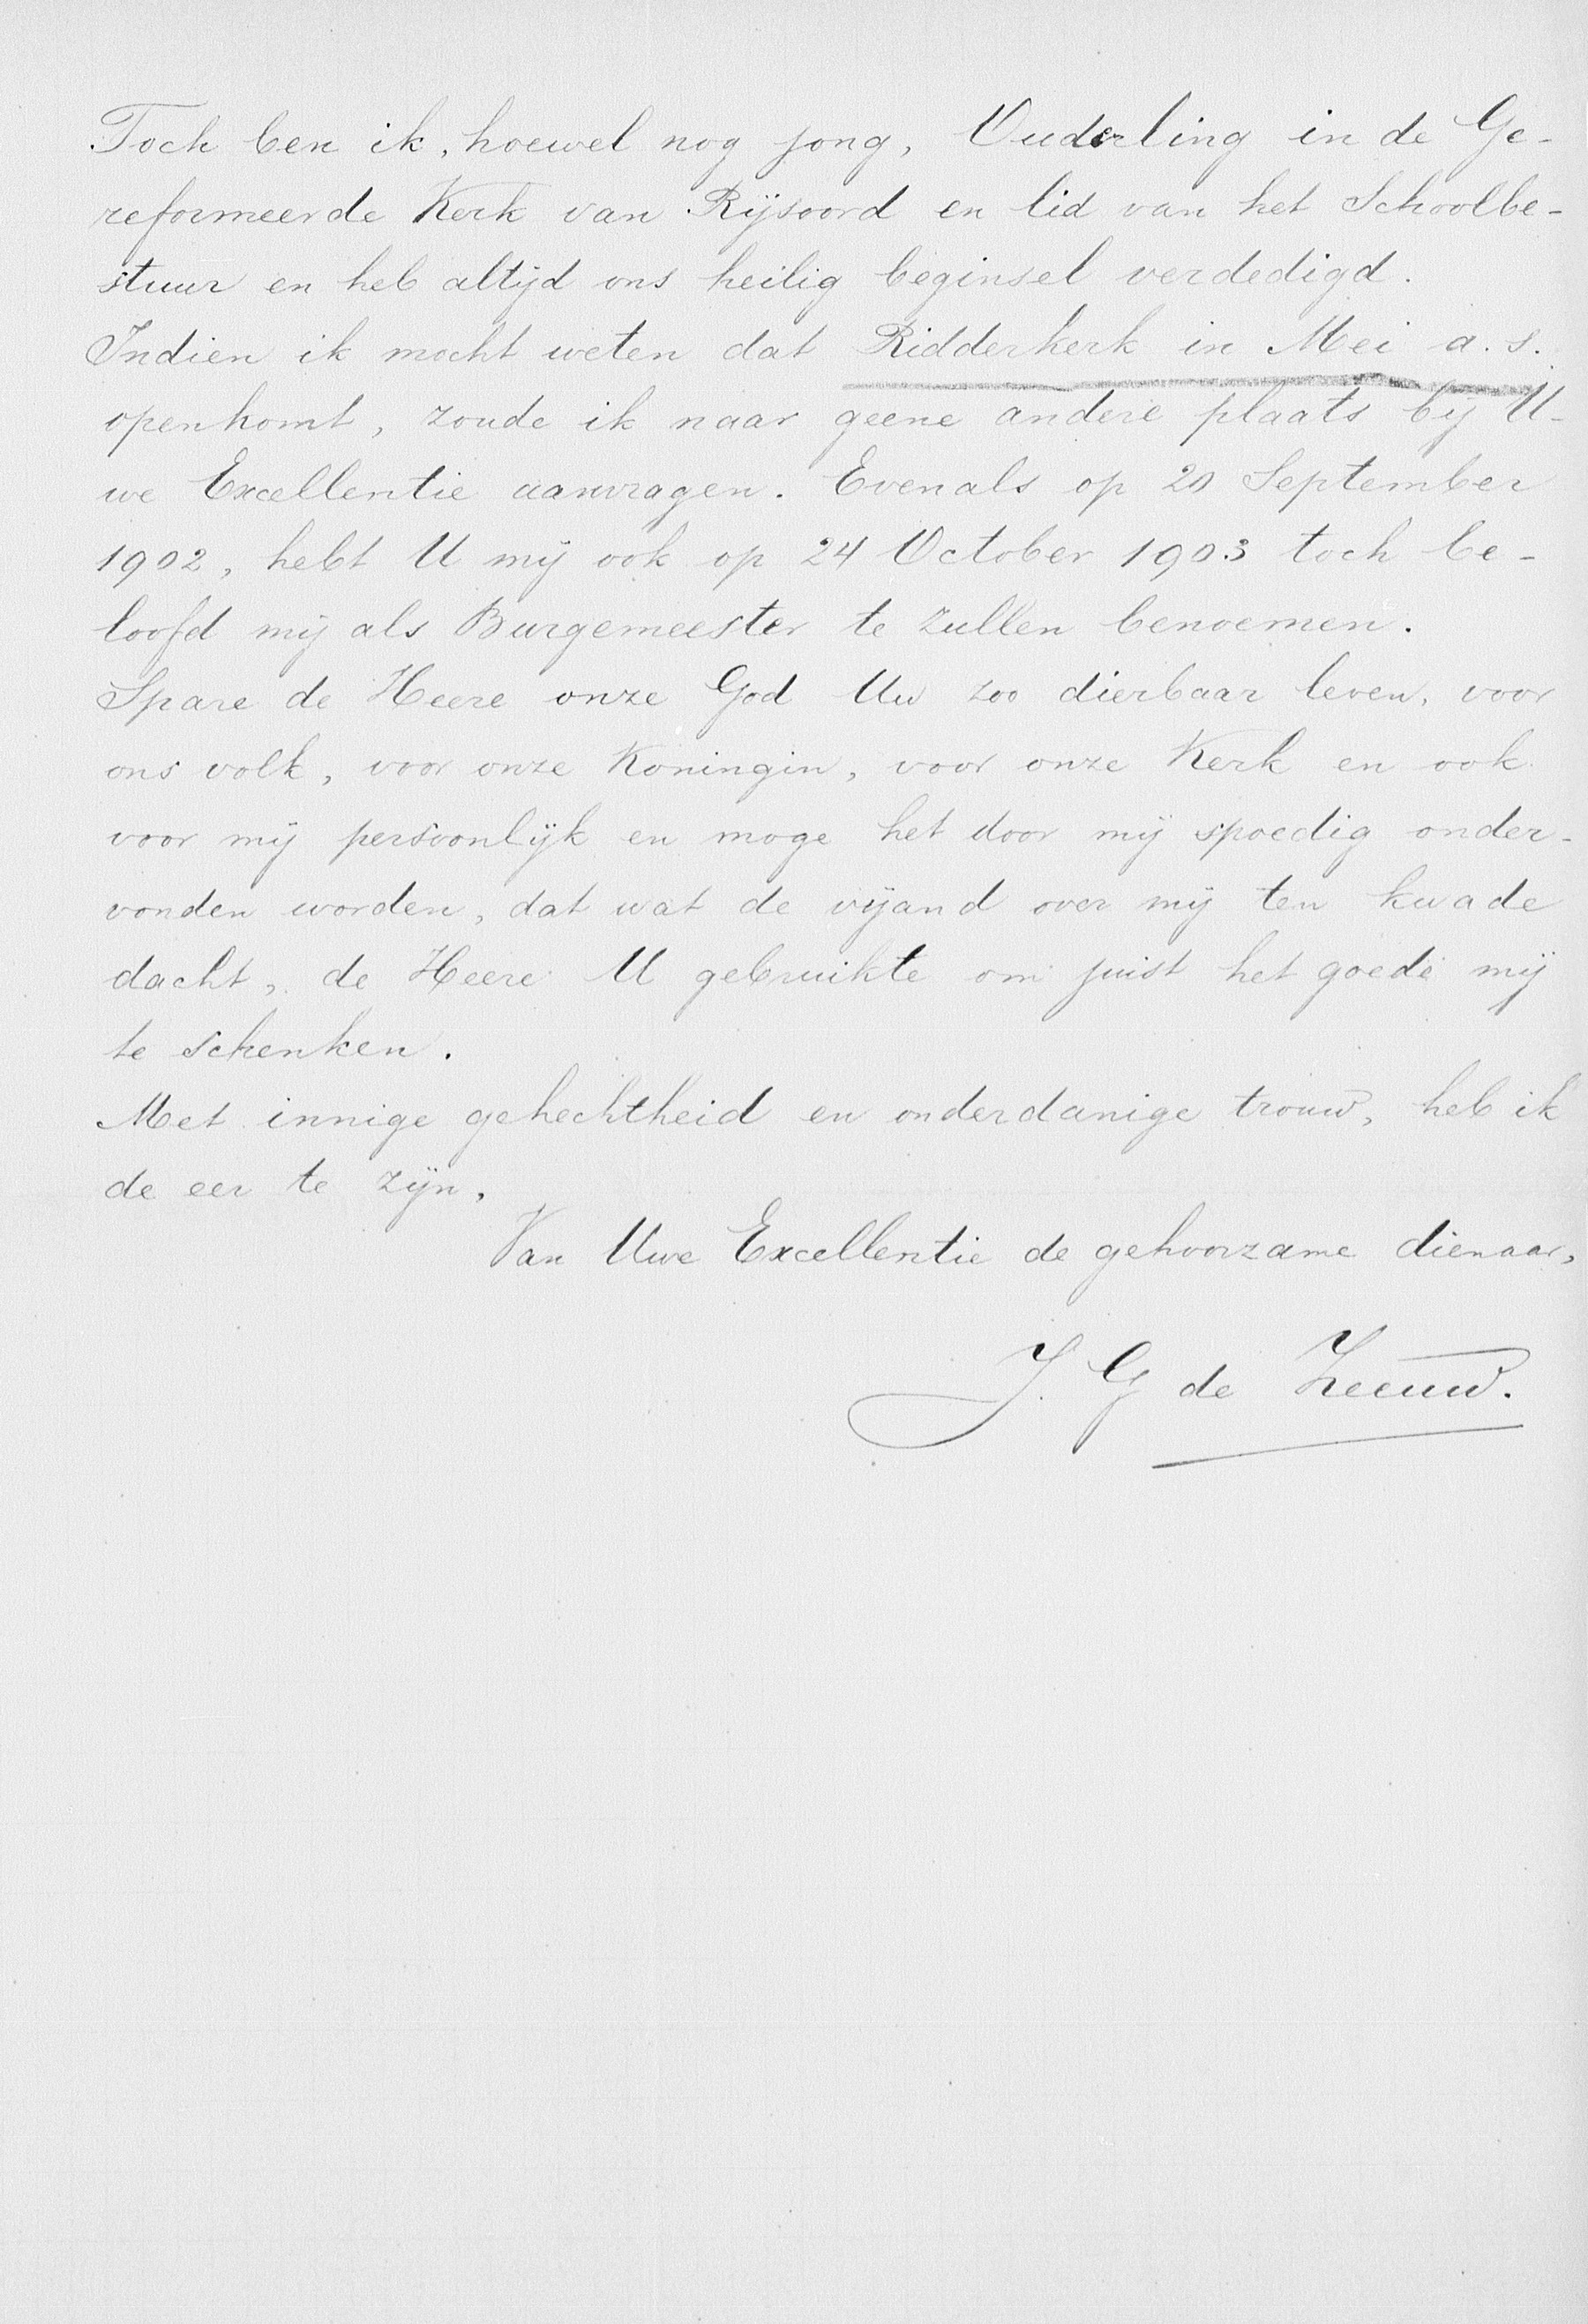 Toch ben ik, hoewel nog jong, Ouderling in de Ge-
reformeerde Kerk van Rijsoord en lid van het Schoolbe-
stuur en heb altijd ons heilig beginsel verdedigd.
Indien ik mocht weten dat Ridderkerk in Mei a.s.
openkomt, zoude ik naar geene andere plaats bij U-
we Excellentie aanvragen. Evenals op 20 September
1902, hebt U mij ook op 24 October 1903 toch be-
loofd mij als Burgemeester te zullen benoemen.
Spare de Heere onze God Uw zoo dierbaar leven, voor
ons volk, voor onze Koningin, voor onze Kerk en ook
voor mij persoonlijk en moge het door mij spoedig onder-
vonden worden, dat wat de vijand over mij ten kwade
dacht, de Heere U gebruikte om juist het goede mij
te schenken.
Met innige gehechtheid en onderdanige trouw, heb ik
de eer te zijn,
Van Uwe Excellentie de gehoorzame dienaar,
J. G de Zeeuw.